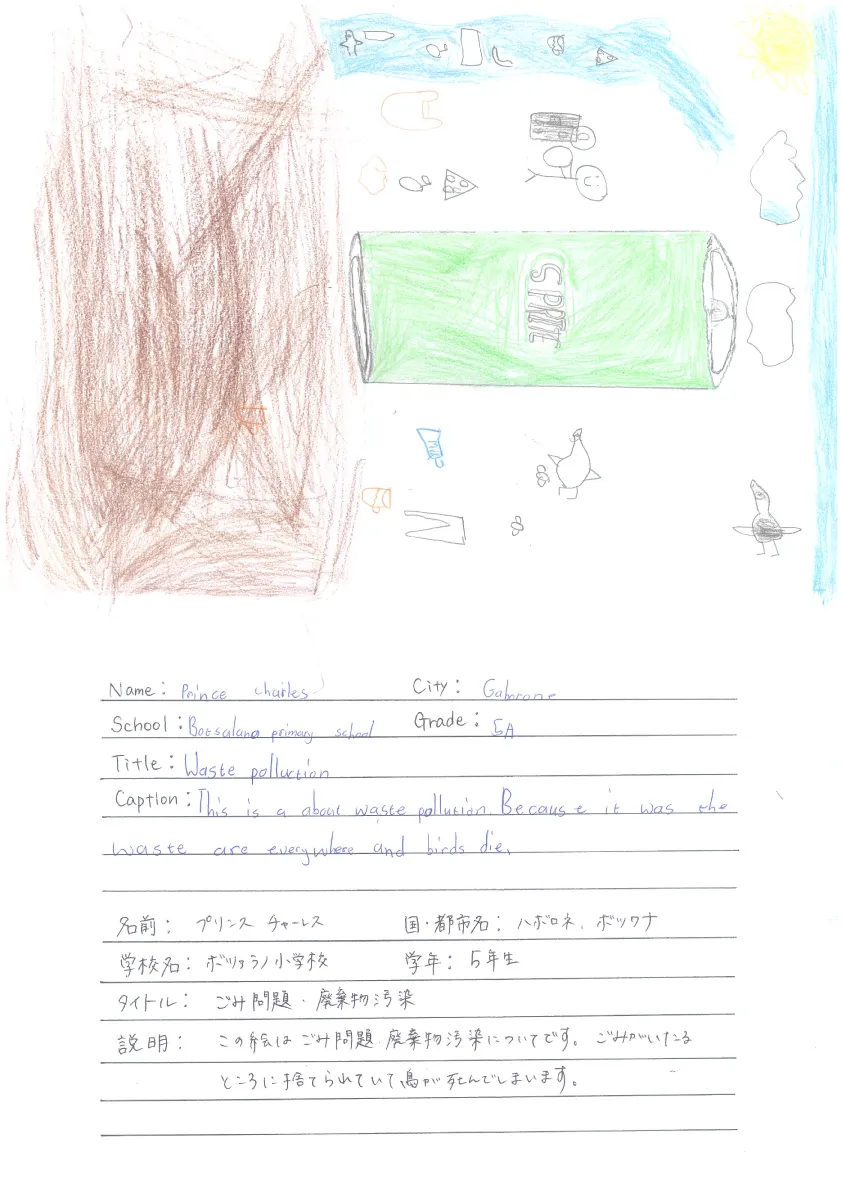 SPRITE
Name: Prince Charles City: Gaborone
School: Botsalano primary school Grade: 5A
Title: Waste polluction
Caption: This is a about waste pollution. Because it was the
waste are everywhere and birds die.
名前: プリンス チャーレス 国・都市名: ハボロネ、ボツワナ
学校名: ボツァラノ小学校 学年: 5年生
タイトル: ごみ問題・廃棄物汚染
説明: この絵はごみ問題・廃棄物汚染についてです。ごみがいたる
ところに捨てられていて、鳥が死んでしまいます。